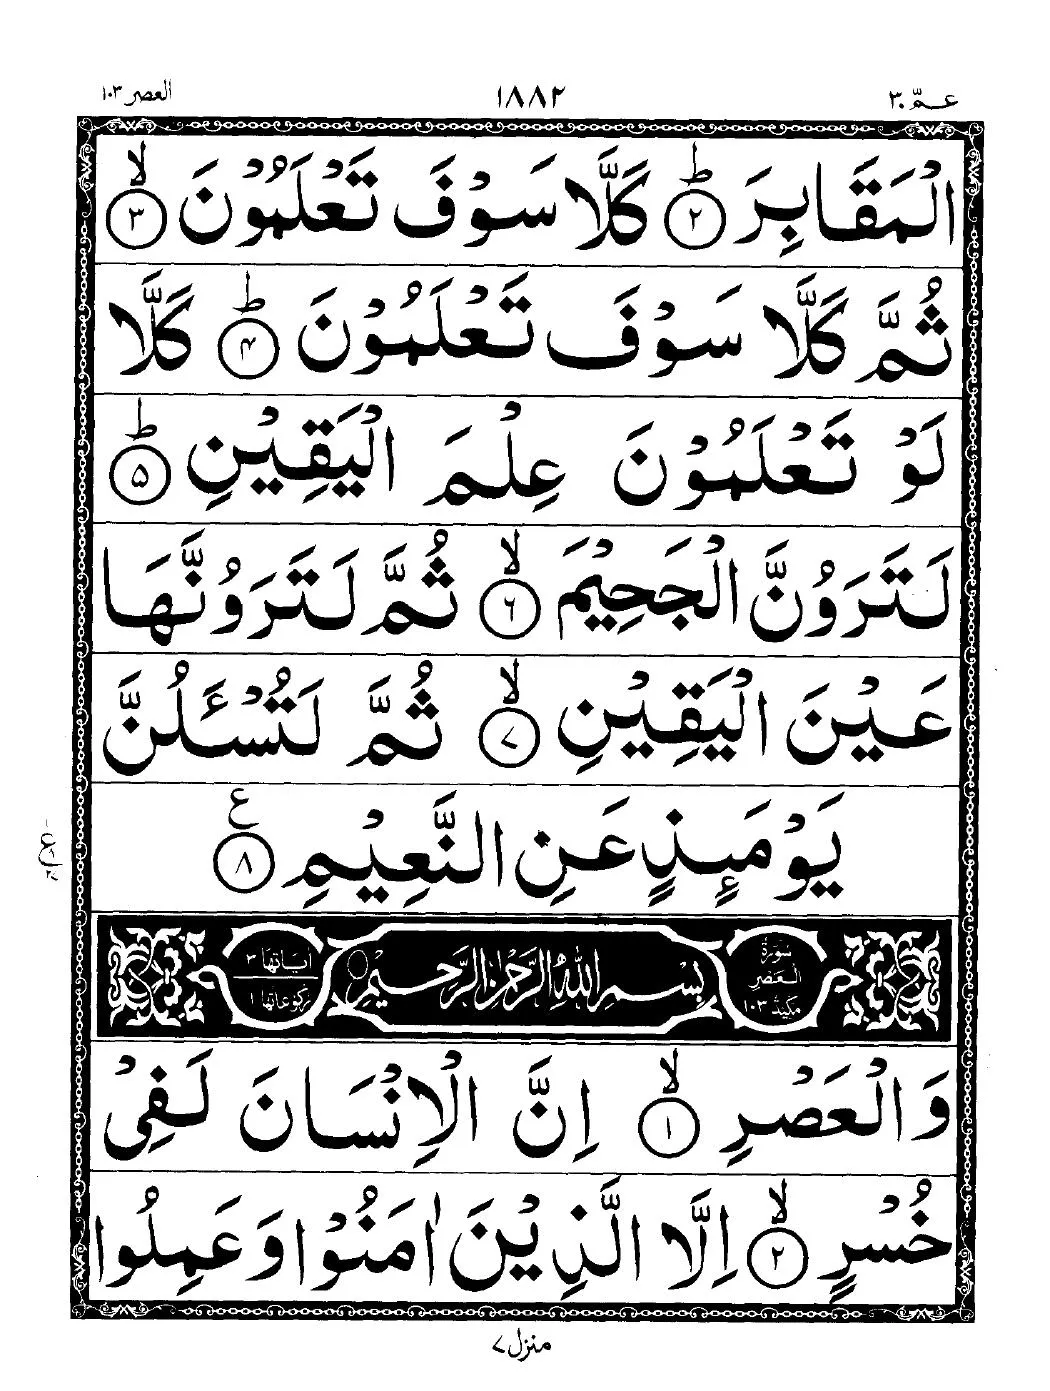 عـمّ ٣٠ ١٨٨٢ العصر ١٠٣
الْمَقَابِرَ ؕ‏ ﴿۲﴾ كَلَّا سَوْفَ تَعْلَمُوْنَۙ‏ ﴿۳﴾
ثُمَّ كَلَّا سَوْفَ تَعْلَمُوْنَؕ‏ ﴿۴﴾ كَلَّا
لَوْ تَعْلَمُوْنَ عِلْمَ الْيَقِيْنِؕ‏ ﴿۵﴾
لَتَرَوُنَّ الْجَحِيْمَۙ‏ ﴿۶﴾ ثُمَّ لَتَرَوُنَّهَا
عَيْنَ الْيَقِيْنِۙ‏ ﴿۷﴾ ثُمَّ لَتُسْـَٔلُنَّ
يَوْمَٮِٕذٍ عَنِ النَّعِيْمِ ﴿۸﴾ ع
سُوْرَةُ الْعَصْرِ مَكِّيَّةٌ ١٠٣ بِسْمِ اللهِ الرَّحْمٰنِ الرَّحِيْمِ اٰيَاتُهَا ٣ رُكُوْعَاتُهَا ١
وَالْعَصْرِۙ‏ ﴿۱﴾ اِنَّ الْاِنْسَانَ لَفِىْ
خُسْرٍۙ‏ ﴿۲﴾ اِلَّا الَّذِيْنَ اٰمَنُوْا وَعَمِلُوا
منزل ٧